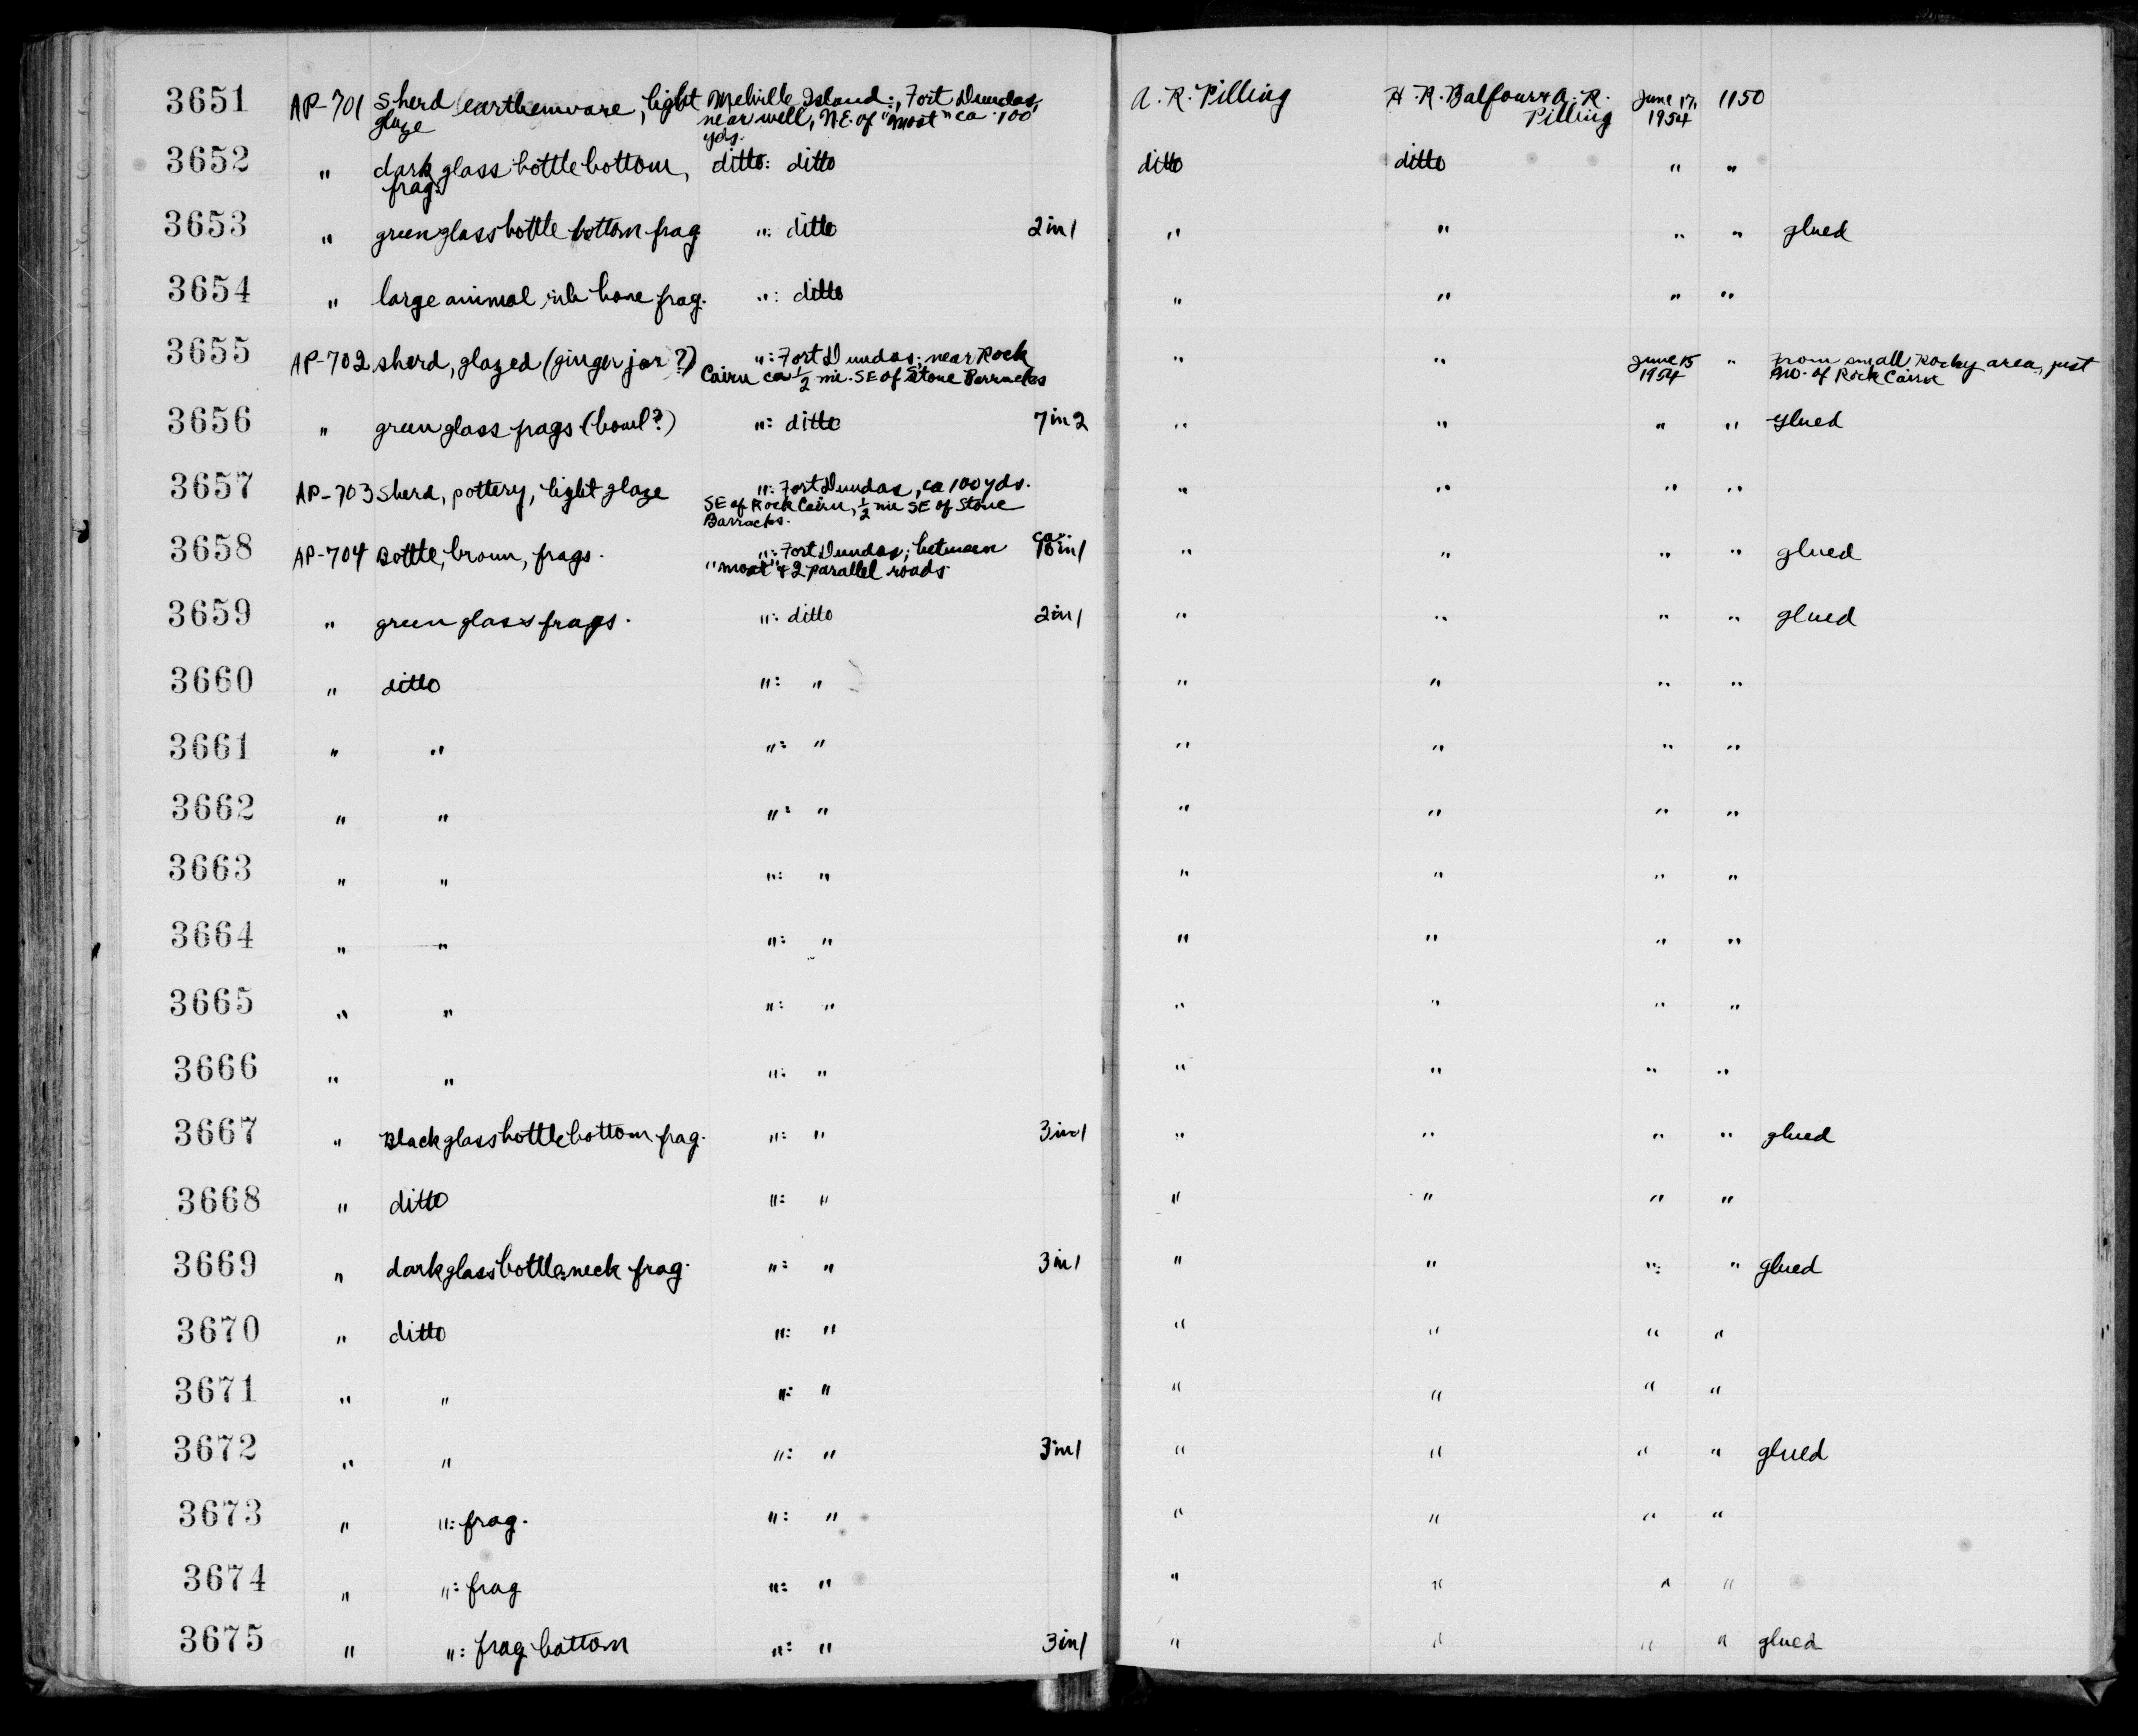 3651 AP-701 Sherd earthenware, light Melville Island:, Fort Dundas, A. R. Pilling H. R. Balfour & A. R. June 17, 1150
glaze near well, N.E. of "moat" ca. 100 Pilling 1954
yds.
3652 " dark glass bottle bottom, ditto: ditto ditto ditto " "
frag.
3653 " green glass bottle bottom frag ": ditto 2 in 1 " " " " glued
3654 " large animal rib bone frag. ": ditto " " " "
3655 AP-702 sherd, glazed (ginger jar?) ": Fort Dundas; near Rock " " June 15 " From small Rocky area, just
Cairn ca ½ mi. SE of Stone Barracks 1954 of Rock Cairn
3656 " green glass frags (bowl?) ": ditto 7 in 2 " " " " glued
3657 AP-703 Sherd, pottery, light glaze ": Fort Dundas, ca 100 yds. " " " "
SE of Rock Cairn, ½ mi SE of Stone
Barracks.
3658 AP-704 Bottle, brown, frags. ": Fort Dundas; between ca. " " " " glued
"moat" & 2 parallel roads in 1
3659 " green glass frags. ": ditto 2 in 1 " " " " glued
3660 " ditto ": " " " " "
3661 " " ": " " " " "
3662 " " ": " " " " "
3663 " " ": " " " " "
3664 " " ": " " " " "
3665 " " ": " " " " "
3666 " " ": " " " " "
3667 " Black glass bottle bottom frag. ": " 3 in 1 " " " " glued
3668 " ditto ": " " " " "
3669 " dark glass bottle: neck frag. ": " 3 in 1 " " " " glued
3670 " ditto ": " " " " "
3671 " " ": " " " " "
3672 " " ": " 3 in 1 " " " " glued
3673 " ": frag. ": " " " " "
3674 " ": frag ": " " " " "
3675 " ": frag bottom ": " 3 in 1 " " " " glued